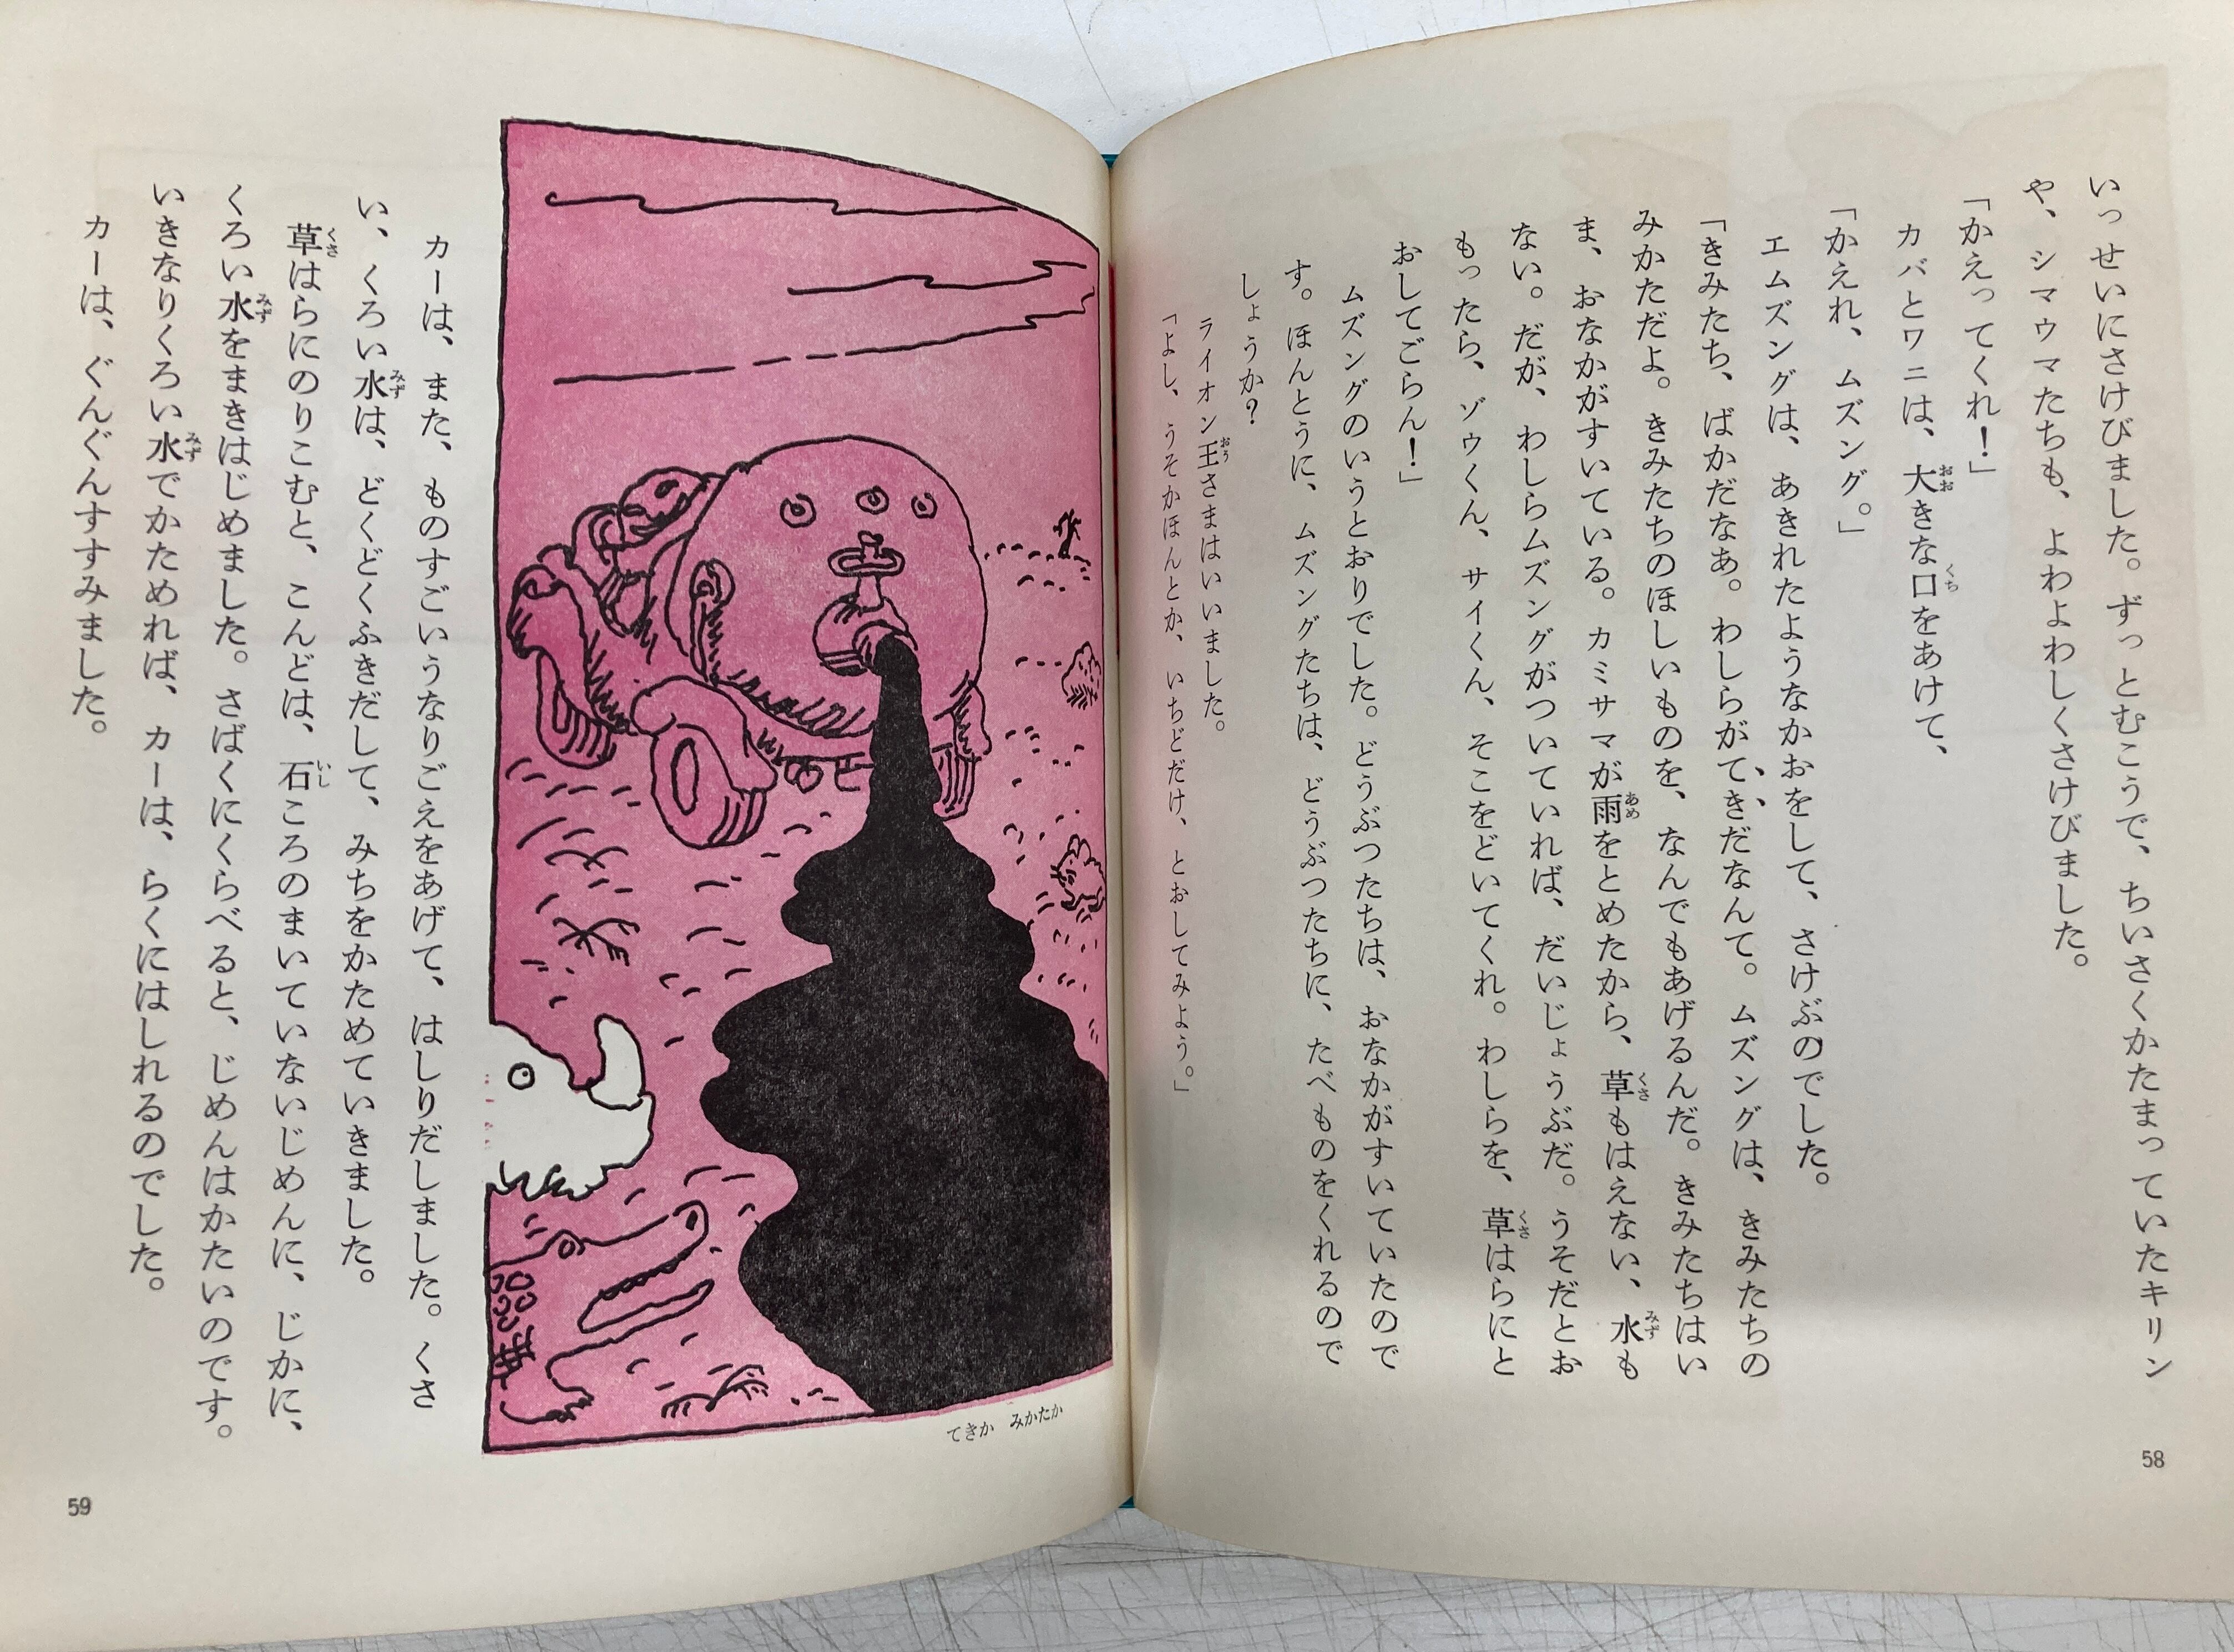 いっせいにさけびました。ずっとむこうで、ちいさくかたまっていたキリン
や、シマウマたちも、よわよわしくさけびました。
「かえってくれ！」
カバとワニは、大きな口をあけて、
「かえれ、ムズング。」
エムズングは、あきれたようなかおをして、さけぶのでした。
「きみたち、ばかだなあ。わしらがてきだなんて。ムズングは、きみたちの
みかただよ。きみたちのほしいものを、なんでもあげるんだ。きみたちはい
ま、おなかがすいている。カミサマが雨をとめたから、草もはえない、水も
ない。だが、わしらムズングがついていれば、だいじょうぶだ。うそだとお
もったら、ゾウくん、サイくん、そこをどいてくれ。わしらを、草はらにと
おしてごらん！」
ムズングのいうとおりでした。どうぶつたちは、おなかがすいていたので
す。ほんとうに、ムズングたちは、どうぶつたちに、たべものをくれるので
しょうか？
ライオン王さまはいいました。
「よし、うそかほんとか、いちどだけ、とおしてみよう。」
58
てきか　みかたか
カーは、また、ものすごいうなりごえをあげて、はしりだしました。くさ
い、くろい水は、どくどくふきだして、みちをかためていきました。
草はらにのりこむと、こんどは、石ころのまいていないじめんに、じかに、
くろい水をまきはじめました。さばくにくらべると、じめんはかたいのです。
いきなりくろい水でかためれば、カーは、らくにはしれるのでした。
カーは、ぐんぐんすすみました。
59